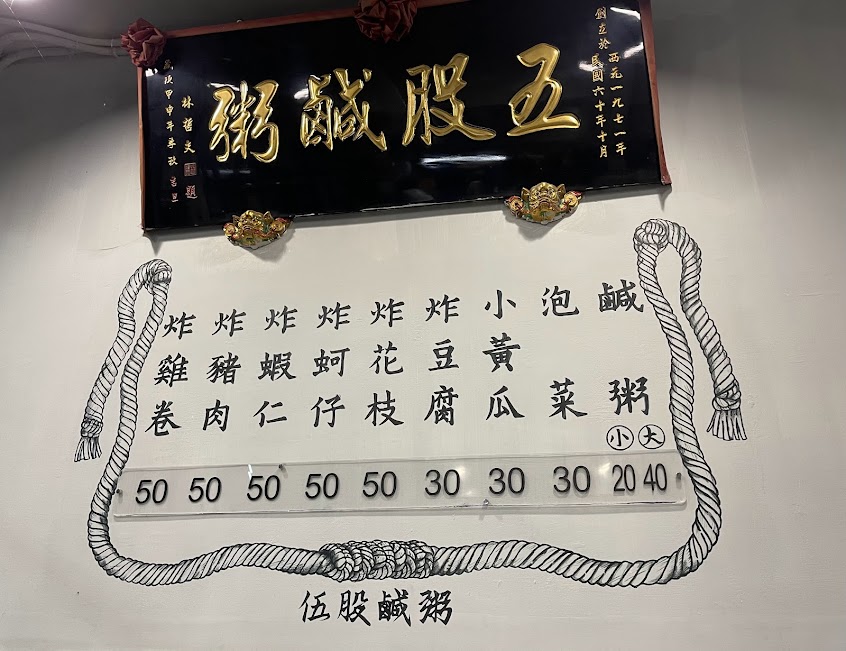 五股鹹粥
創立於西元一九七一年
民國六十年十月
林哲文
題
鹹粥 小 大 20 40
泡菜 30
小黃瓜 30
炸豆腐 30
炸花枝 50
炸蚵仔 50
炸蝦仁 50
炸豬肉 50
炸雞卷 50
伍股鹹粥